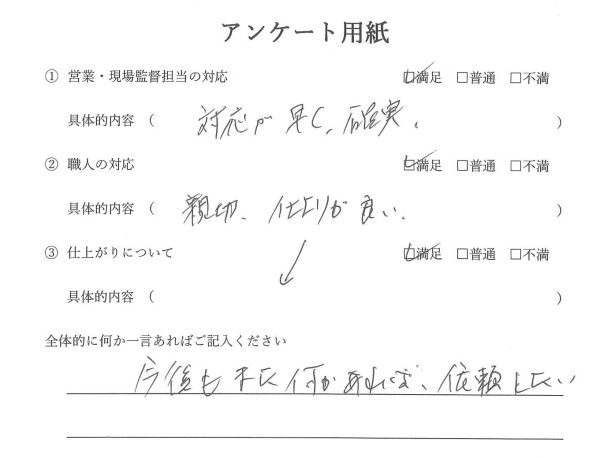 アンケート用紙
① 営業・現場監督担当の対応 ☑満足 □普通 □不満
具体的内容 ( 対応が早く、確実。 )
② 職人の対応 ☑満足 □普通 □不満
具体的内容 ( 親切、仕上りが良い。 )
③ 仕上がりについて ☑満足 □普通 □不満
具体的内容 ( )
全体的に何か一言あればご記入ください
今後も また 何か あれば、依頼したい